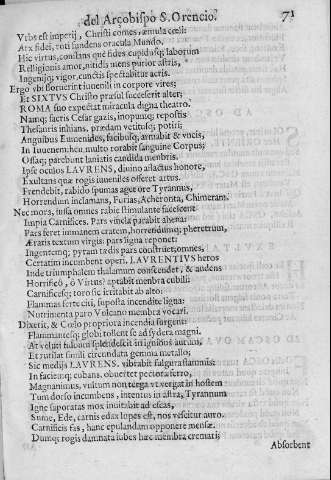 del Arçobispo S. Orencio. 71
Vrbs est imperij, Christi comes, æmula cœli:
Atx fidei, toti fundens oracula Mundo.
Hic virtus, constans que fides cupidusq; laborum
Relligionis amor, nitidis mens purior astris,
Ingenijq; vigor, cunctis spectabitur actis.
Ergo vbi floruerint iuuenili in corpore vires;
Et SIXTVS Christo præsul successerit alter;
ROMA suo expectat miracula digna theatro.
Namq; sacris Cesar gazis, inopumq; repostis
Thesauris inhians, prædam vetitusq; potiri;
Anguibus Eumenides, facibusq; armabit & vncis,
In Iuuenem: heu multo rorabit sanguine Corpus;
Ossaq; parebunt laniatis candida membris.
Ipse oculos LAVRENS, diuino afflactus honore,
Exultans quæ rogis iuueniles offeret artus.
Frendebit, rabido spumas aget ore Tyrannus,
Horrendum inclamans, Furias, Acheronta, Chimeram.
Nec mora, iussa omnes rabie stimulante facescent
Impia Carnifices. Pars vincla parabit ahena:
Pars feret immanem cratem, horrendumq; pheretrum,
Æratis textum virgis: pars ligna reponet:
Ingentemq; pyram tædis pars construet; omnes,
Certatim incumbent operi. LAVRENTIVS heros
Inde triumphalem thalamum conscendet, & audens
Horrificó, ó Virtus! aptabit membra cubili:
Carnificesq; toro sic irritabit ab alto:
Flammas ferte citi, suposta incendite ligna:
Nutrimenta paro Vulcano membra vocari.
Dixerit, & Cœlo propriora incendia surgent:
Flammantesq; globi tollent se ad sydera magni.
At veluti fuluum splendescit in ignibus aurum,
Et rutilat simili circundata gemma metallo;
Sic medijs LAVRENS. vibrabit fulgura flammis:
In faciemq; cubans. obuertet pectora ferro,
Magnanimus, vultum non terga vt vergat in hostem
Tum dorso incumbens, intentus in astra, Tyrannum
Igne saporatas mox inuitabit ad escas,
Sume, Ede, carnis edax lopes est, nos vescitur auro.
Carnificis fas, hanc epulandam opponere mensæ.
Dumq; rogis damnata iubes hæc membra cremari;
Absorbent